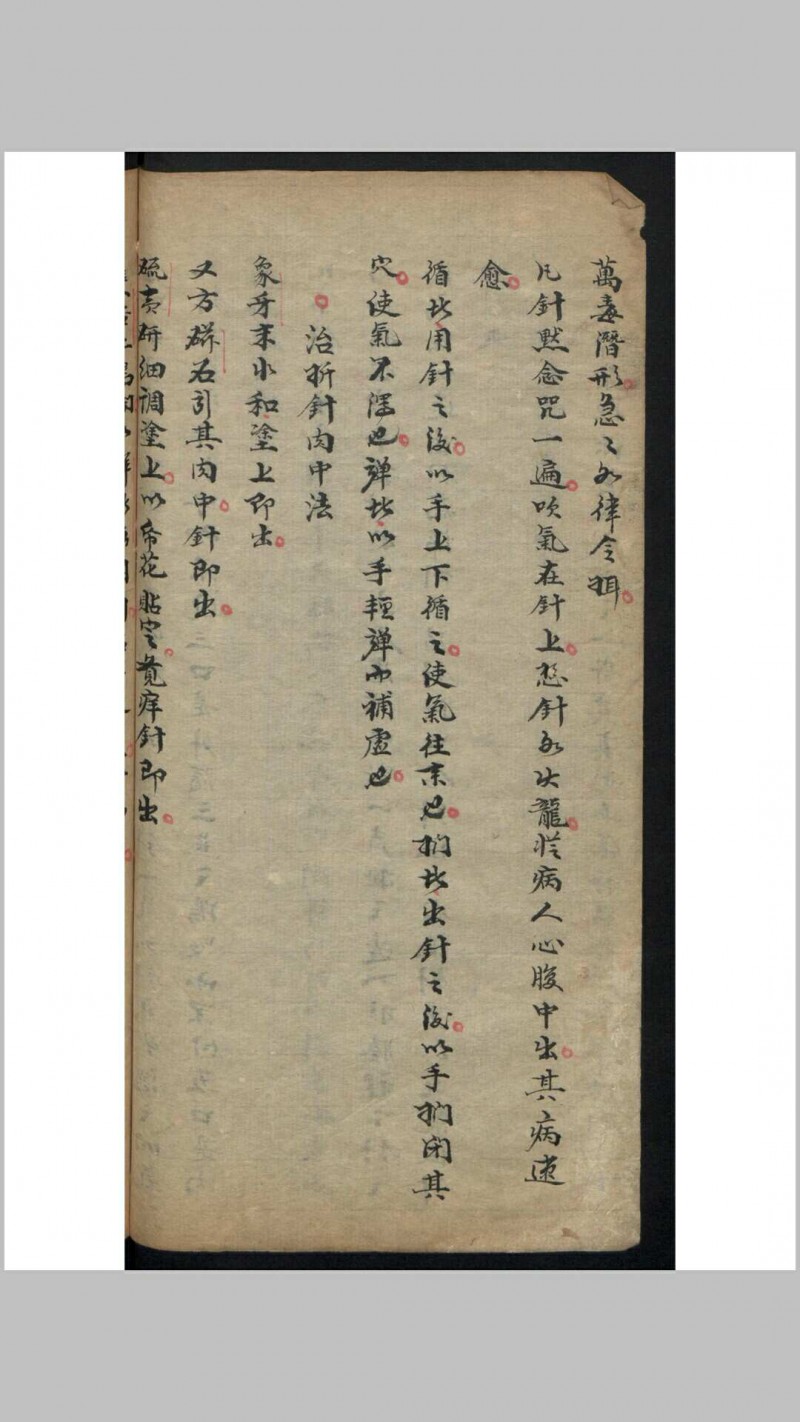 萬毒潛形急〻如律令𢭏
凡針默念咒一遍吹氣在針上想針如火龍從病人心腹中出其病速
愈
循者用針之後以手上下循之使氣往来也捫者出針之後以手捫閉其
穴使氣不泄也彈者以手輕彈而補虛也
治折針肉中法
象牙末水和塗上即出
又方磁石引其肉中針即出
硫黄研細調塗上以紙花貼定覺痒針即出